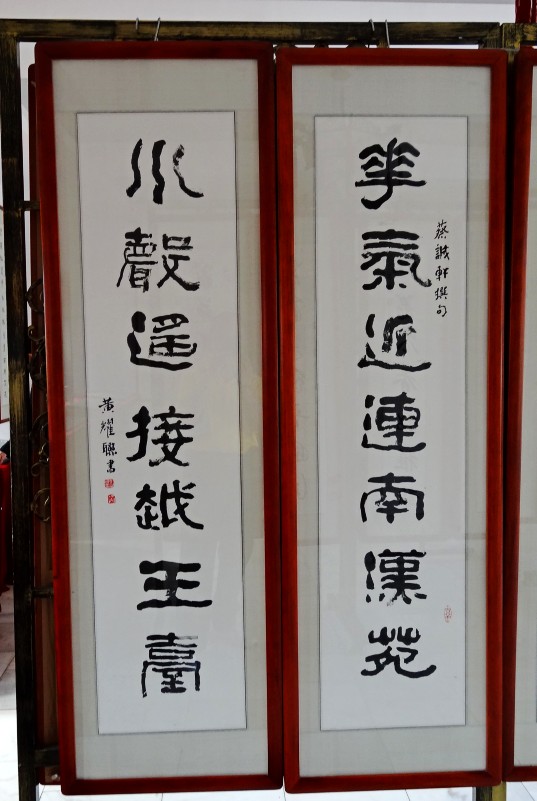 華氣近連南漢苑
蔡誠軒撰句
水聲遥接越王臺
黃耀聯書